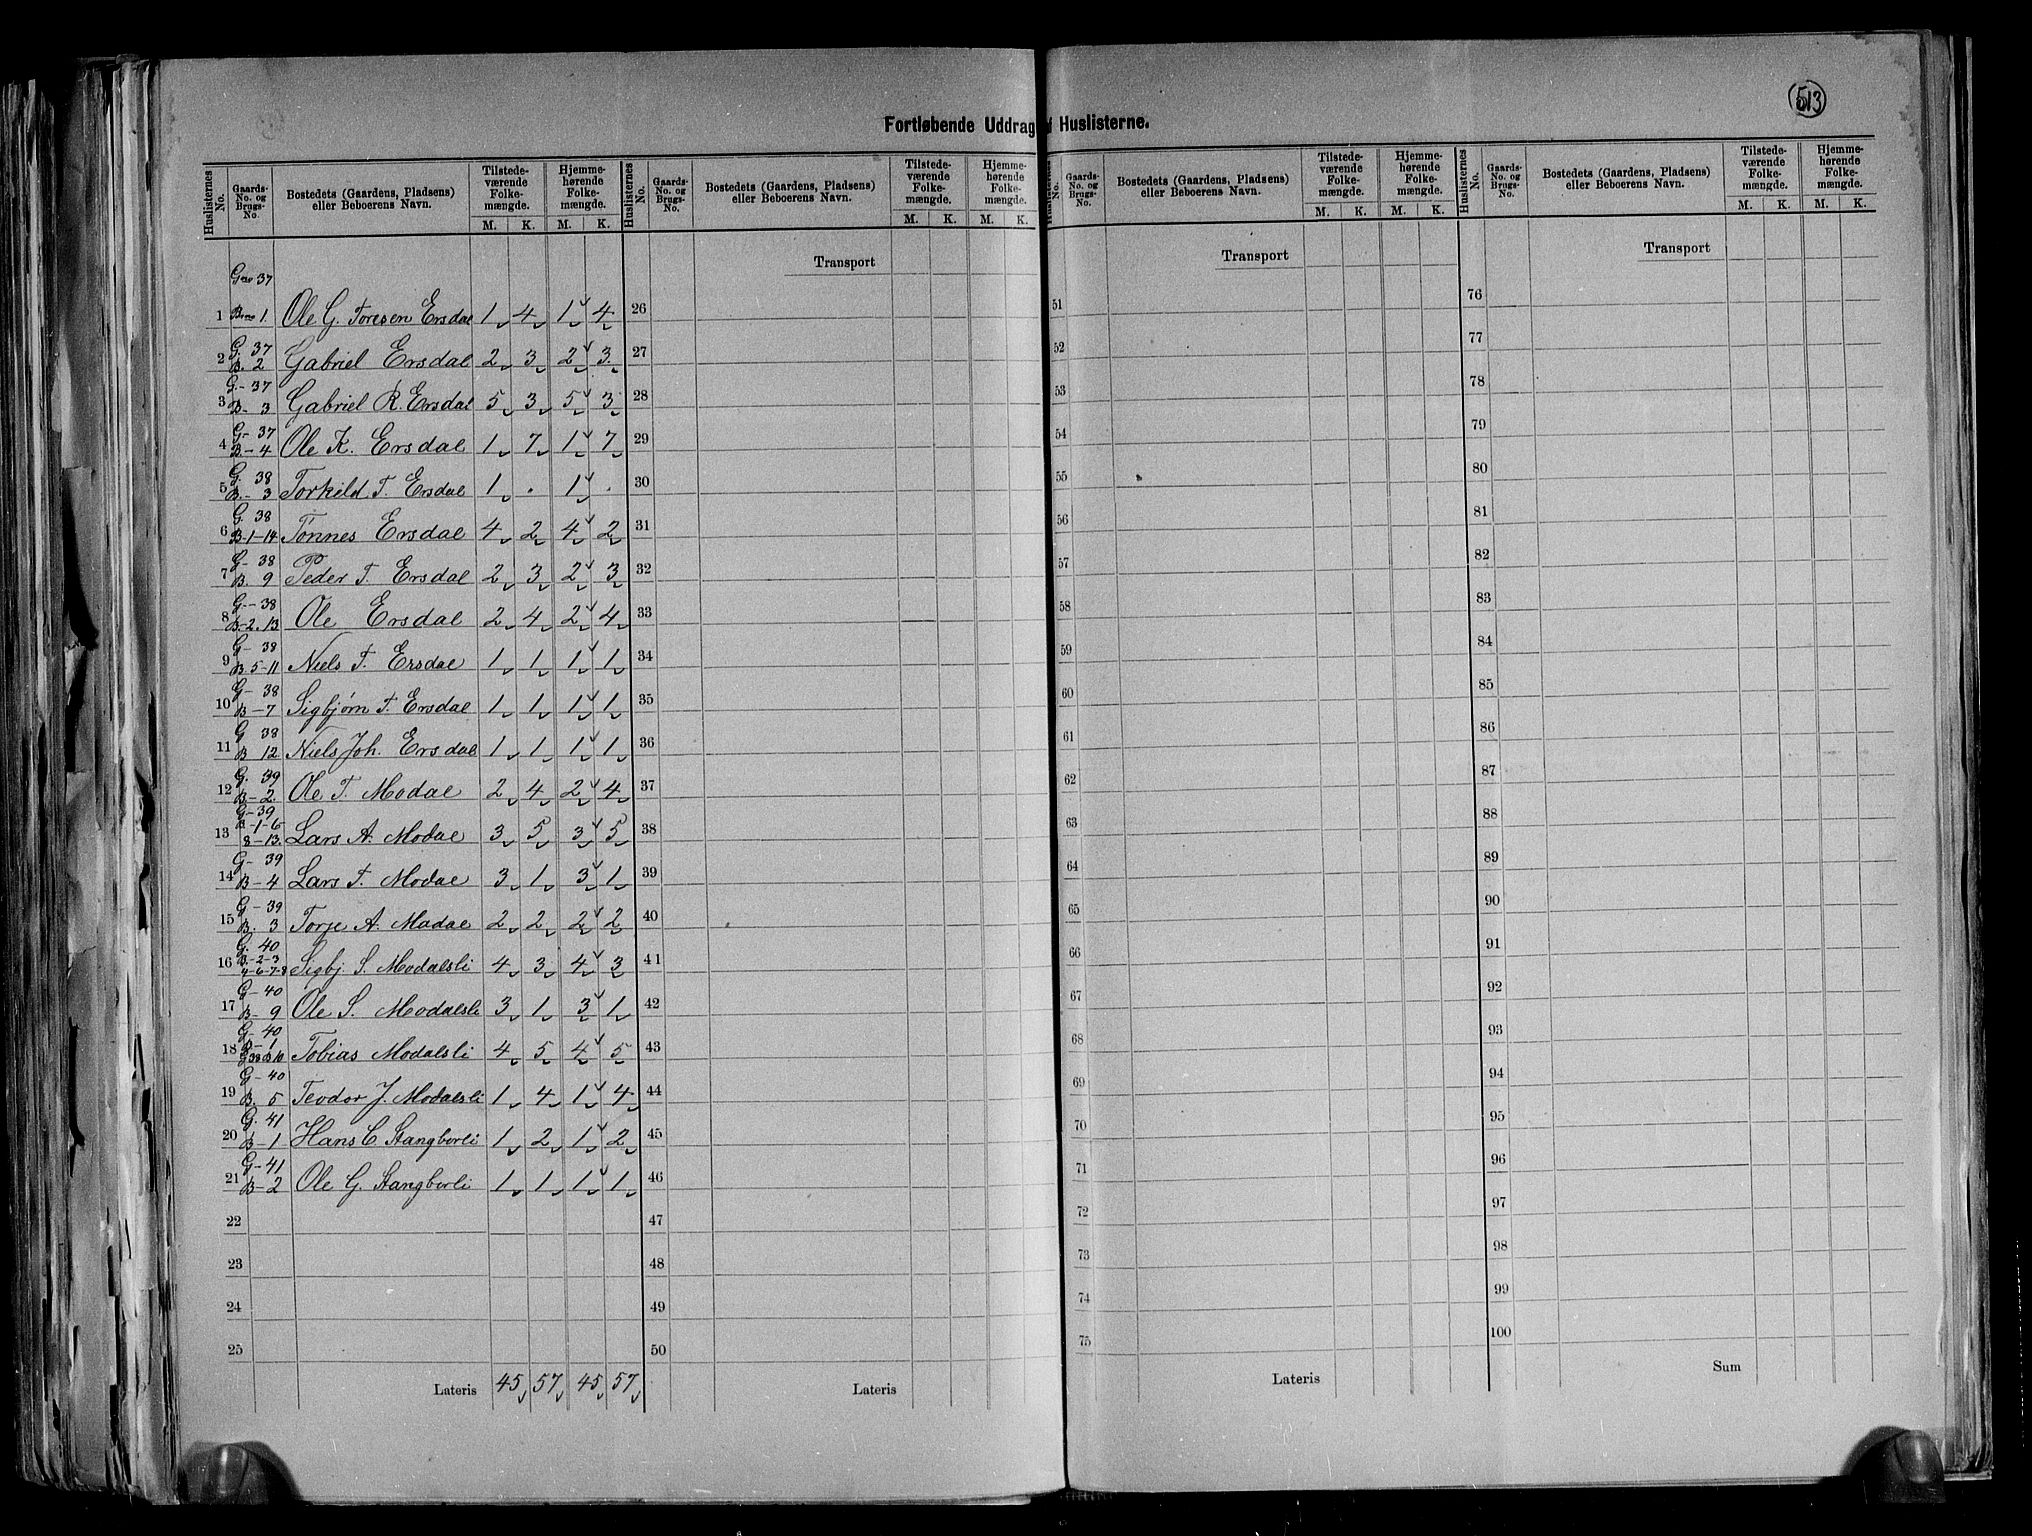 513
Fortløbende Uddrag f Huslisterne.
Huslisternes No. Gaards-No. og Brugs-No. Bostedets (Gaardens, Pladsens) eller Beboerens Navn. Tilstedeværende Folkemængde. M. K. Hjemmehørende Folkemængde. M. K.
Huslisternes No. Gaards-No. og Brugs-No. Bostedets (Gaardens, Pladsens) eller Beboerens Navn. Tilstedeværende Folkemængde. M. K. Hjemmehørende Folkemængde. M. K.
Huslisternes No. Gaards-No. og Brugs-No. Bostedets (Gaardens, Pladsens) eller Beboerens Navn. Tilstedeværende Folkemængde. M. K. Hjemmehørende Folkemængde. M. K.
Huslisternes No. Gaards-No. og Brugs-No. Bostedets (Gaardens, Pladsens) eller Beboerens Navn. Tilstedeværende Folkemængde. M. K. Hjemmehørende Folkemængde. M. K.
Gno 37
1 Bno 1. Ole G. Toresen Ersdal 1 4 1 4
2 G. 37 B. 2 Gabriel Ersdal 2 3 2 3
3 G.- 37 B- 3 Gabriel R. Ersdal 5 3 5 3
4 G- 37 B.- 4 Ole K. Ersdal 1 7 1 7
5 G. 38 B.- 3 Torkild T. Ersdal 1 . 1 .
6 G. 38 B-1-14 Tønnes Ersdal 4 2 4 2
7 G- 38 B. 9 Peder T. Ersdal 2 3 2 3
8 G-- 38 B.-2. 13 Ole Ersdal 2 4 2 4
9 G- 38 B 5-11 Niels T. Ersdal 1 1 1 1
10 G- 38 B-7 Sigbjørn T. Ersdal 1 1 1 1
11 G 38 B 12 Niels Joh. Ersdal 1 1 1 1
12 G. 39 B- 2. Ole T. Modal 2 4 2 4
13 G-39 B-1-6 8-13. Lars A. Modal 3 5 3 5
14 G- 39 B- 4 Lars T. Modal 3 1 3 1
15 G- 39 B. 3 Torje A. Modal 2 2 2 2
16 G. 40 B.-2-3 4-6-7-8 Sigbj. S. Modalsli 4 3 4 3
17 G- 40 B- 9 Ole S. Modalsli 3 1 3 1
18 G- 40 B- 1 G38 B10 Tobias Modalsli 4 5 4 5
19 G- 40 B. 5 Teodor J. Modalsli 1 4 1 4
20 G. 41 B- 1 Hans C. Stangborli 1 2 1 2
21 G- 41 B- 2 Ole G. Stangborli 1 1 1 1
22
23
24
25
Lateris 45 57 45 57
Transport
26
27
28
29
30
31
32
33
34
35
36
37
38
39
40
41
42
43
44
45
46
47
48
49
50
Lateris
Transport
51
52
53
54
55
56
57
58
59
60
61
62
63
64
65
66
67
68
69
70
71
72
73
74
75
Lateris
Transport
76
77
78
79
80
81
82
83
84
85
86
87
88
89
90
91
92
93
94
95
96
97
98
99
100
Sum